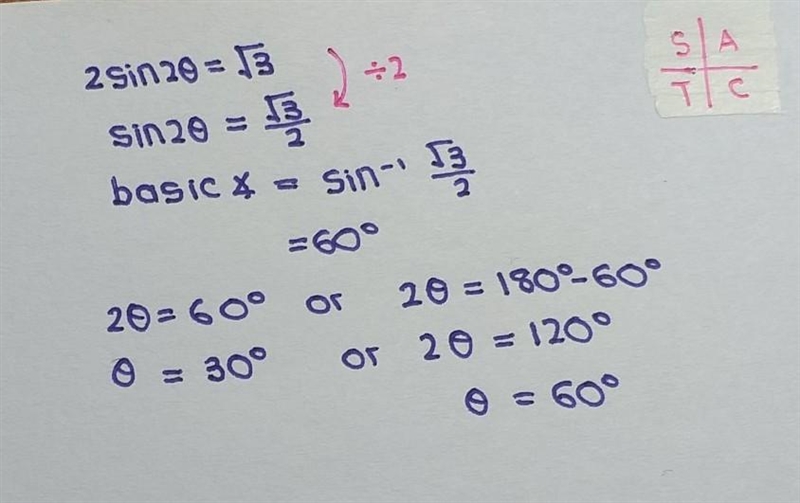 2sin2θ = √3
÷2
S A
T C
sin2θ = √3/2
basic ∡ = sin⁻¹ √3/2
= 60°
2θ = 60° or 2θ = 180° - 60°
θ = 30° or 2θ = 120°
θ = 60°